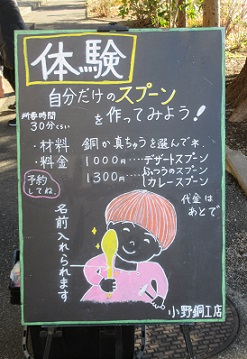 体験
自分だけのスプーン
を作ってみよう!
所要時間
30分くらい
・材料 銅か真ちゅうを選んでネ.
・料金 1000円‥‥デザートスプーン
1300円‥‥ふつうのスプーン
カレースプーン
予約
してね。
代金は
あとで
名前入れられます
小野銅工店